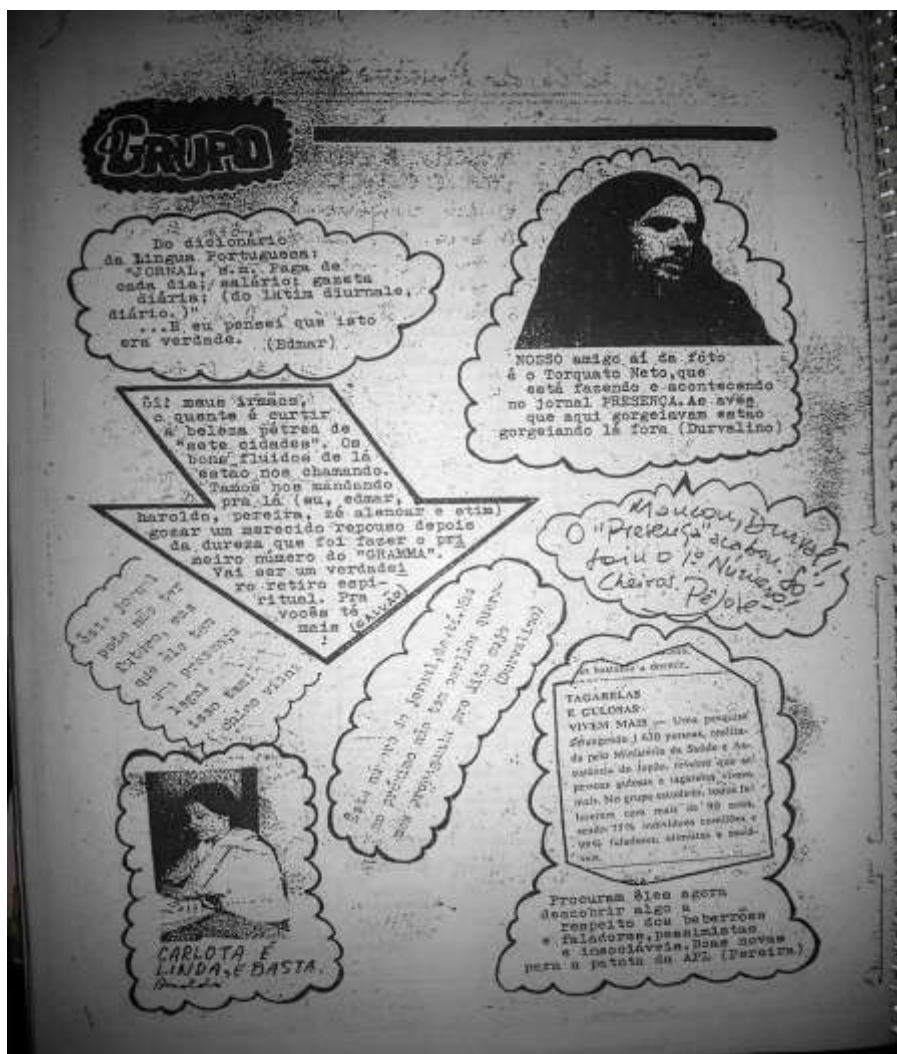 GRUPO
Do dicionário
da Língua Portuguesa:
"JORNAL, s.m. Paga de
cada dia;/salário; gazeta
diária; (do latim diurnale,
diário.)"
...E eu pensei que isto
era verdade. (Edmar)
NOSSO amigo aí da fóto
é o Torquato Neto,que
está fazendo e acontecendo
no jornal PRESENÇA.As aves
que aqui gorgeiavam estao
gorgeiando lá fora (Durvalino)
Ôi! meus irmãos,
o quente é curtir
a beleza pétrea de
"sete cidades". Os
bons fluidos de lá
estao nos chamando.
Tamos nos mandando
pra lá (eu, edmar,
haroldo, pereira, zé alencar e etim)
gozar um merecido repouso depois
da dureza que foi fazer o pri
meiro número do "GRAMMA".
Vai ser um verdadei
ro retiro espi-
ritual. Pra
vocês té
mais
Durval!
O "Presença" acabou. Só
saiu o 1º Número!
Cheiros.
Este jornal
pode não ter
futuro, mas
que ele tem
presença
legal
isso
(Durvalino)
TAGARELAS
E GULOSAS
VIVEM MAIS — Uma pesquisa
abrangendo 1 630 pessoas, realiza-
da pelo Ministério da Saúde e As-
sistência do Japão, revelou que as
pessoas gulosas e tagarelas vivem
mais. No grupo estudado, todos fa-
leceram com mais de 90 anos,
sendo 75% indivíduos comilões e
99% faladores, otimistas e sociá-
veis.
Procuram êles agora
descobrir algo a
respeito dos beberrões
e faladores,pessimistas
e insociáveis.Boas novas
para a patota da APL (Pereira)
CARLOTA É
LINDA, E BASTA.